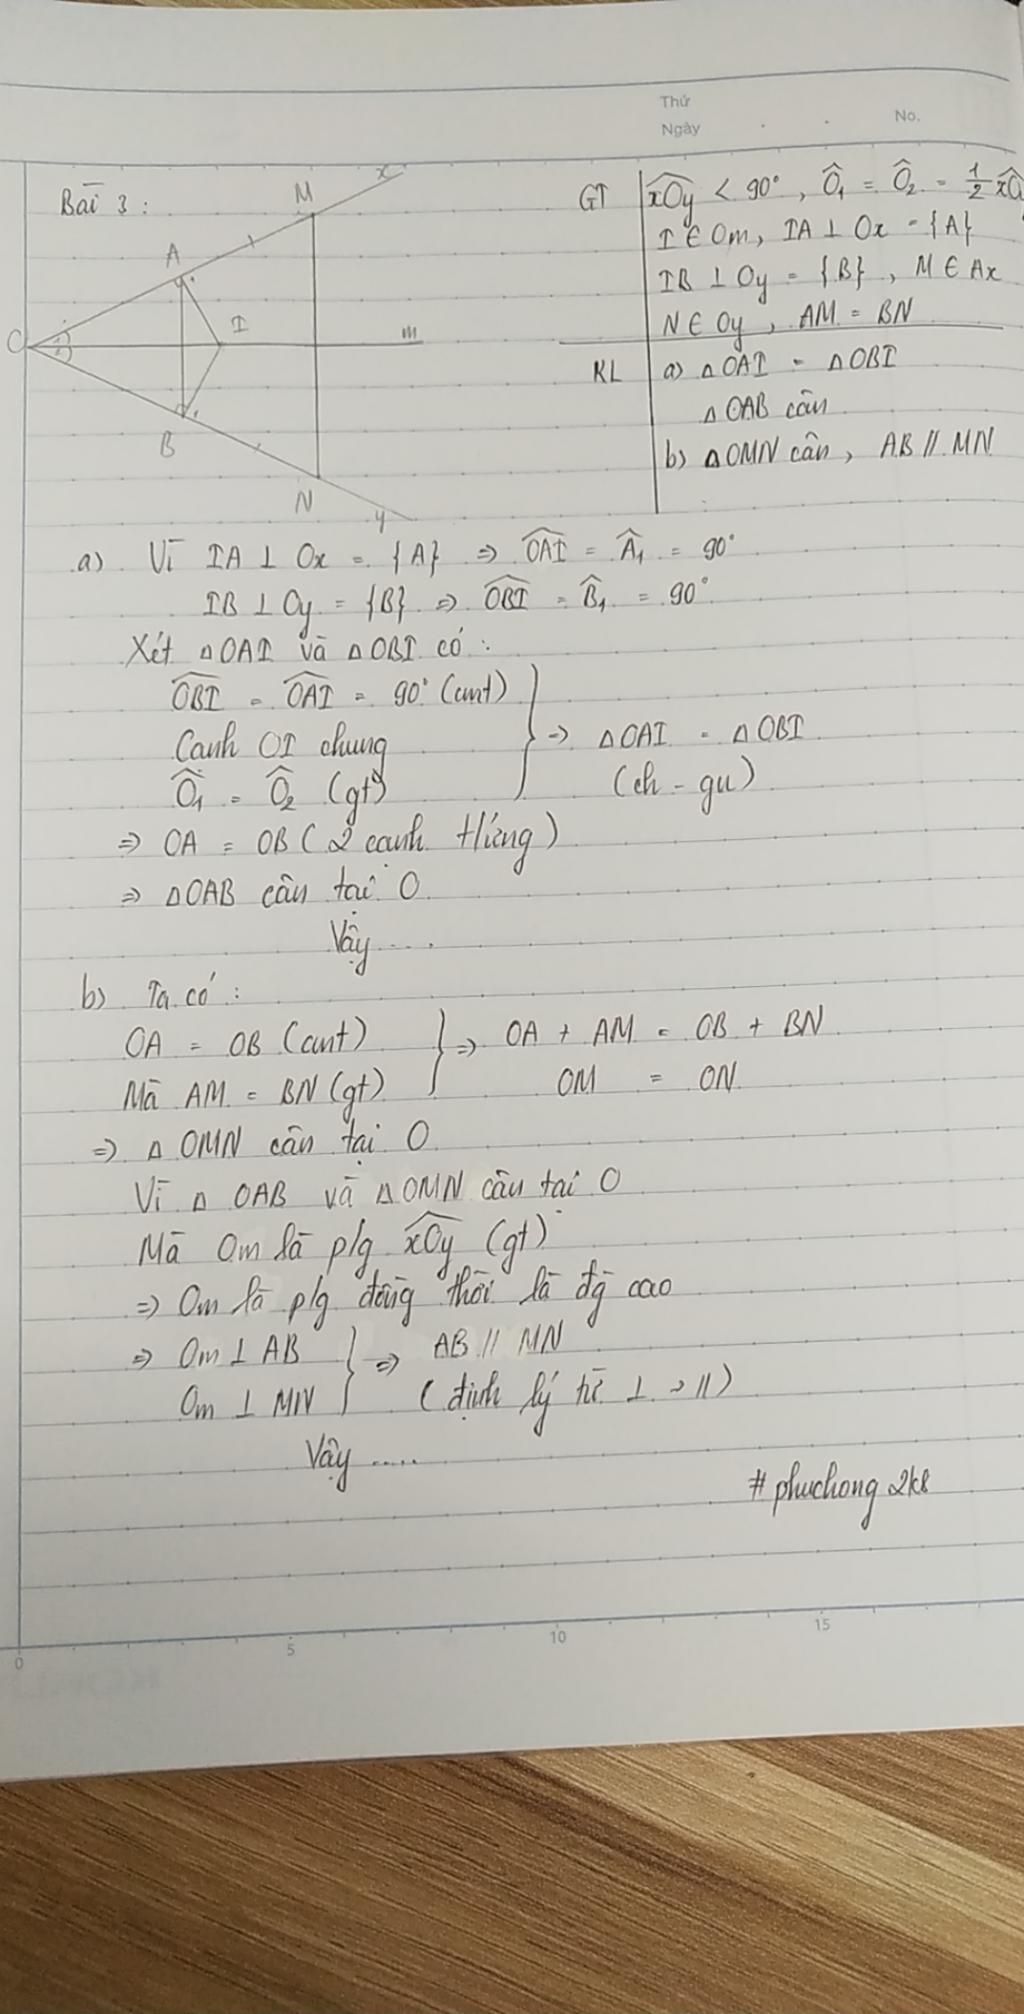 Thứ
Ngày
No.
Bài 3 :
x
M
A
O
I
m
1
2
B
N
y
GT
xOy < 90°, Ô1 = Ô2 = 1/2 xO
I ∈ Om, IA ⊥ Ox = {A}
IB ⊥ Oy = {B}, M ∈ Ax
N ∈ Oy, AM = BN
KL
a) △OAI = △OBI
△OAB cân
b) △OMN cân, AB // MN
a) Vì IA ⊥ Ox = {A} => OAI = Â1 = 90°
IB ⊥ Oy = {B} => OBI = B̂1 = 90°
Xét △OAI và △OBI có :
OBI = OAI = 90° (cmt)
Cạnh OI chung
Ô1 = Ô2 (gt)
=> △OAI = △OBI
(ch - gn)
=> OA = OB (2 cạnh tứng)
=> △OAB cân tại O
Vậy ....
b) Ta có :
OA = OB (cmt)
Mà AM = BN (gt)
=> OA + AM = OB + BN
OM = ON
=> △OMN cân tại O
Vì △OAB và △OMN cân tại O
Mà Om là p/g xOy (gt)
=> Om là p/g đồng thời là đg cao
=> Om ⊥ AB
Om ⊥ MN
=> AB // MN
(định lý từ ⊥ -> //)
Vậy .....
# phuchong 2k8
0 5 10 15